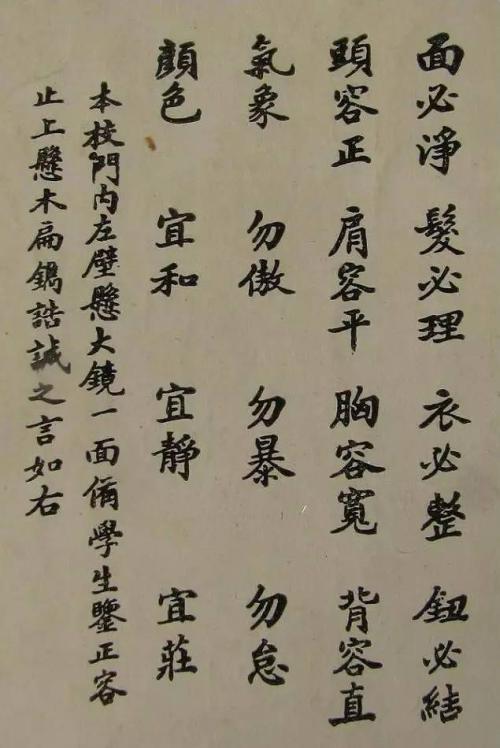 面必淨 髮必理 衣必整 鈕必結
頭容正 肩容平 胸容寬 背容直
氣象 勿傲 勿暴 勿怠
顏色 宜和 宜靜 宜莊
本校門內左壁懸大鏡一面俻學生鑒正容
止上懸木扁鐫誥誡之言如右